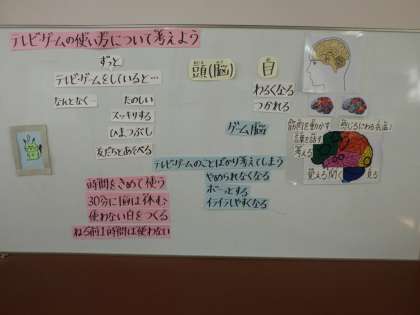 テレビゲームの使い方について考えよう
ずっと
テレビゲームをしていると…
なんとなく
たのしい
スッキリする
ひまつぶし
友だちとあそべる
時間をきめて使う
30分に1回は休む
使わない日をつくる
ねる前1時間は使わない
頭(脳)
目
わるくなる
つかれる
ゲーム脳
テレビゲームのことばかり考えてしまう
やめられなくなる
ボーっとする
イライラしやすくなる
筋肉を動かす
言葉を話す
考える
覚える
聞く
見る